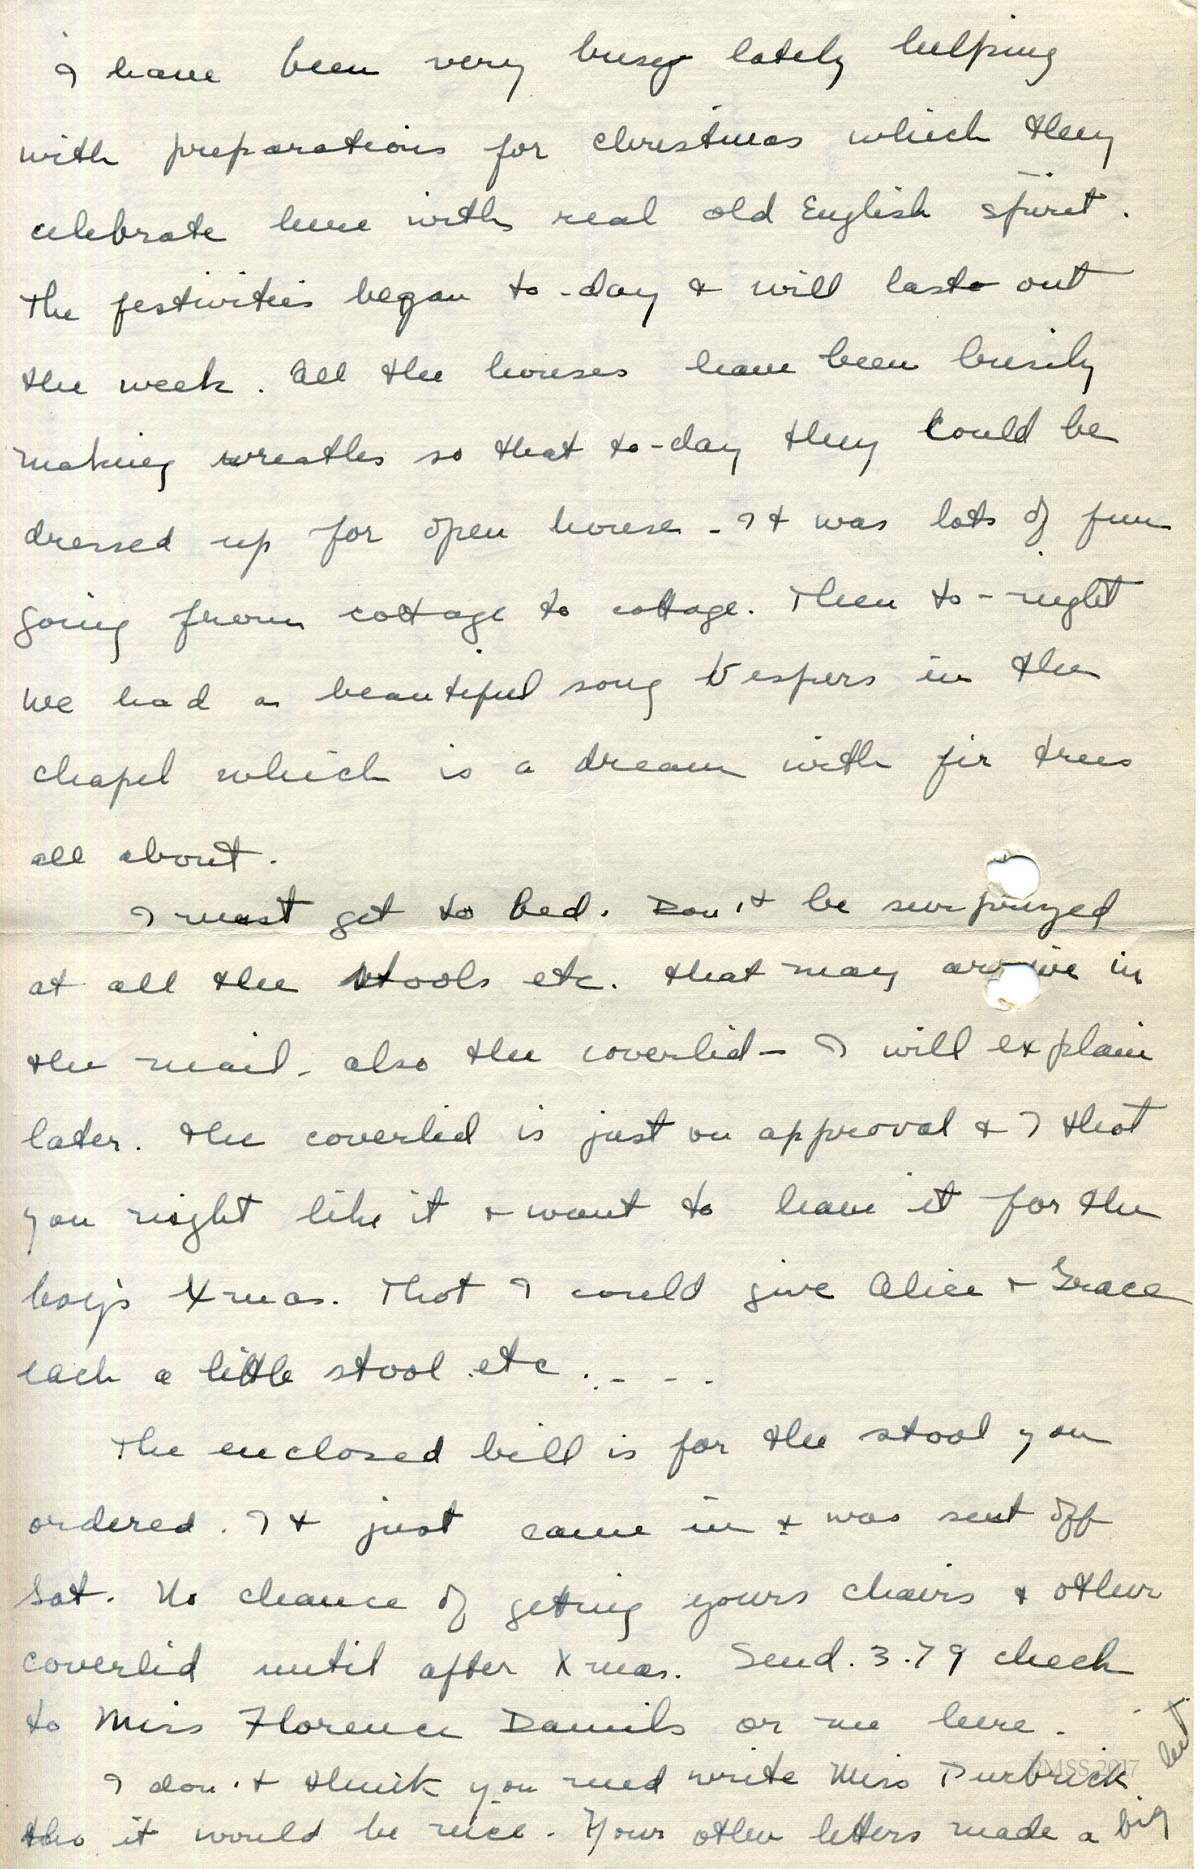 I have been very busy lately helping
with preparations for christmas which they
celebrate here with real old English spirit.
The festivities began to-day & will last out
the week. All the houses have been busily
making wreaths so that to-day they could be
dressed up for open house - It was lots of fun
going from cottage to cottage. Then to-night
we had a beautiful song Vespers in the
chapel which is a dream with fir trees
all about.
I must get to bed. Don't be surprized
at all the stools etc. that may arrive in
the mail - also the coverlid - I will explain
later. The coverlid is just on approval & I thot
you might like it & want to have it for the
boy's Xmas. Thot I could give Alice & Grace
each a little stool etc . - - -
The enclosed bill is for the stool you
ordered. It just came in & was sent off
Sat. No chance of geting yours chairs & other
coverlid until after Xmas. Send. 3.79 check
to Miss Florence Daniels or me here.
I don't think you need write Miss Durbrick
tho it would be nice. Your other letters made a big
hit
PMSS 2017